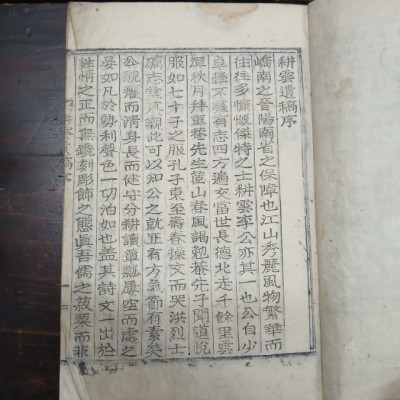 耕雲遺稿序
嶠南之晉陽南省之保障也江山秀麗風物繁華而
往往多慷慨傑特之士耕雲李公亦其一也公自少
不有志四方遍交當世長德北走千餘里雲
潭秋月拜重菴先生藍山春風謁勉菴先子聞道悅
服如七十子之服孔子東至壽春操文而哭洪烈士
志觀此可以知公之就正有方氣節有素矣
公貌癯而清身長而健守分耕讀簞瓢屢空而處之
晏如凡於勢利聲色一切泊如也蓋其詩文一出於
性情之正而無鏤刻彫飾之態眞吾儒之菽粟而非